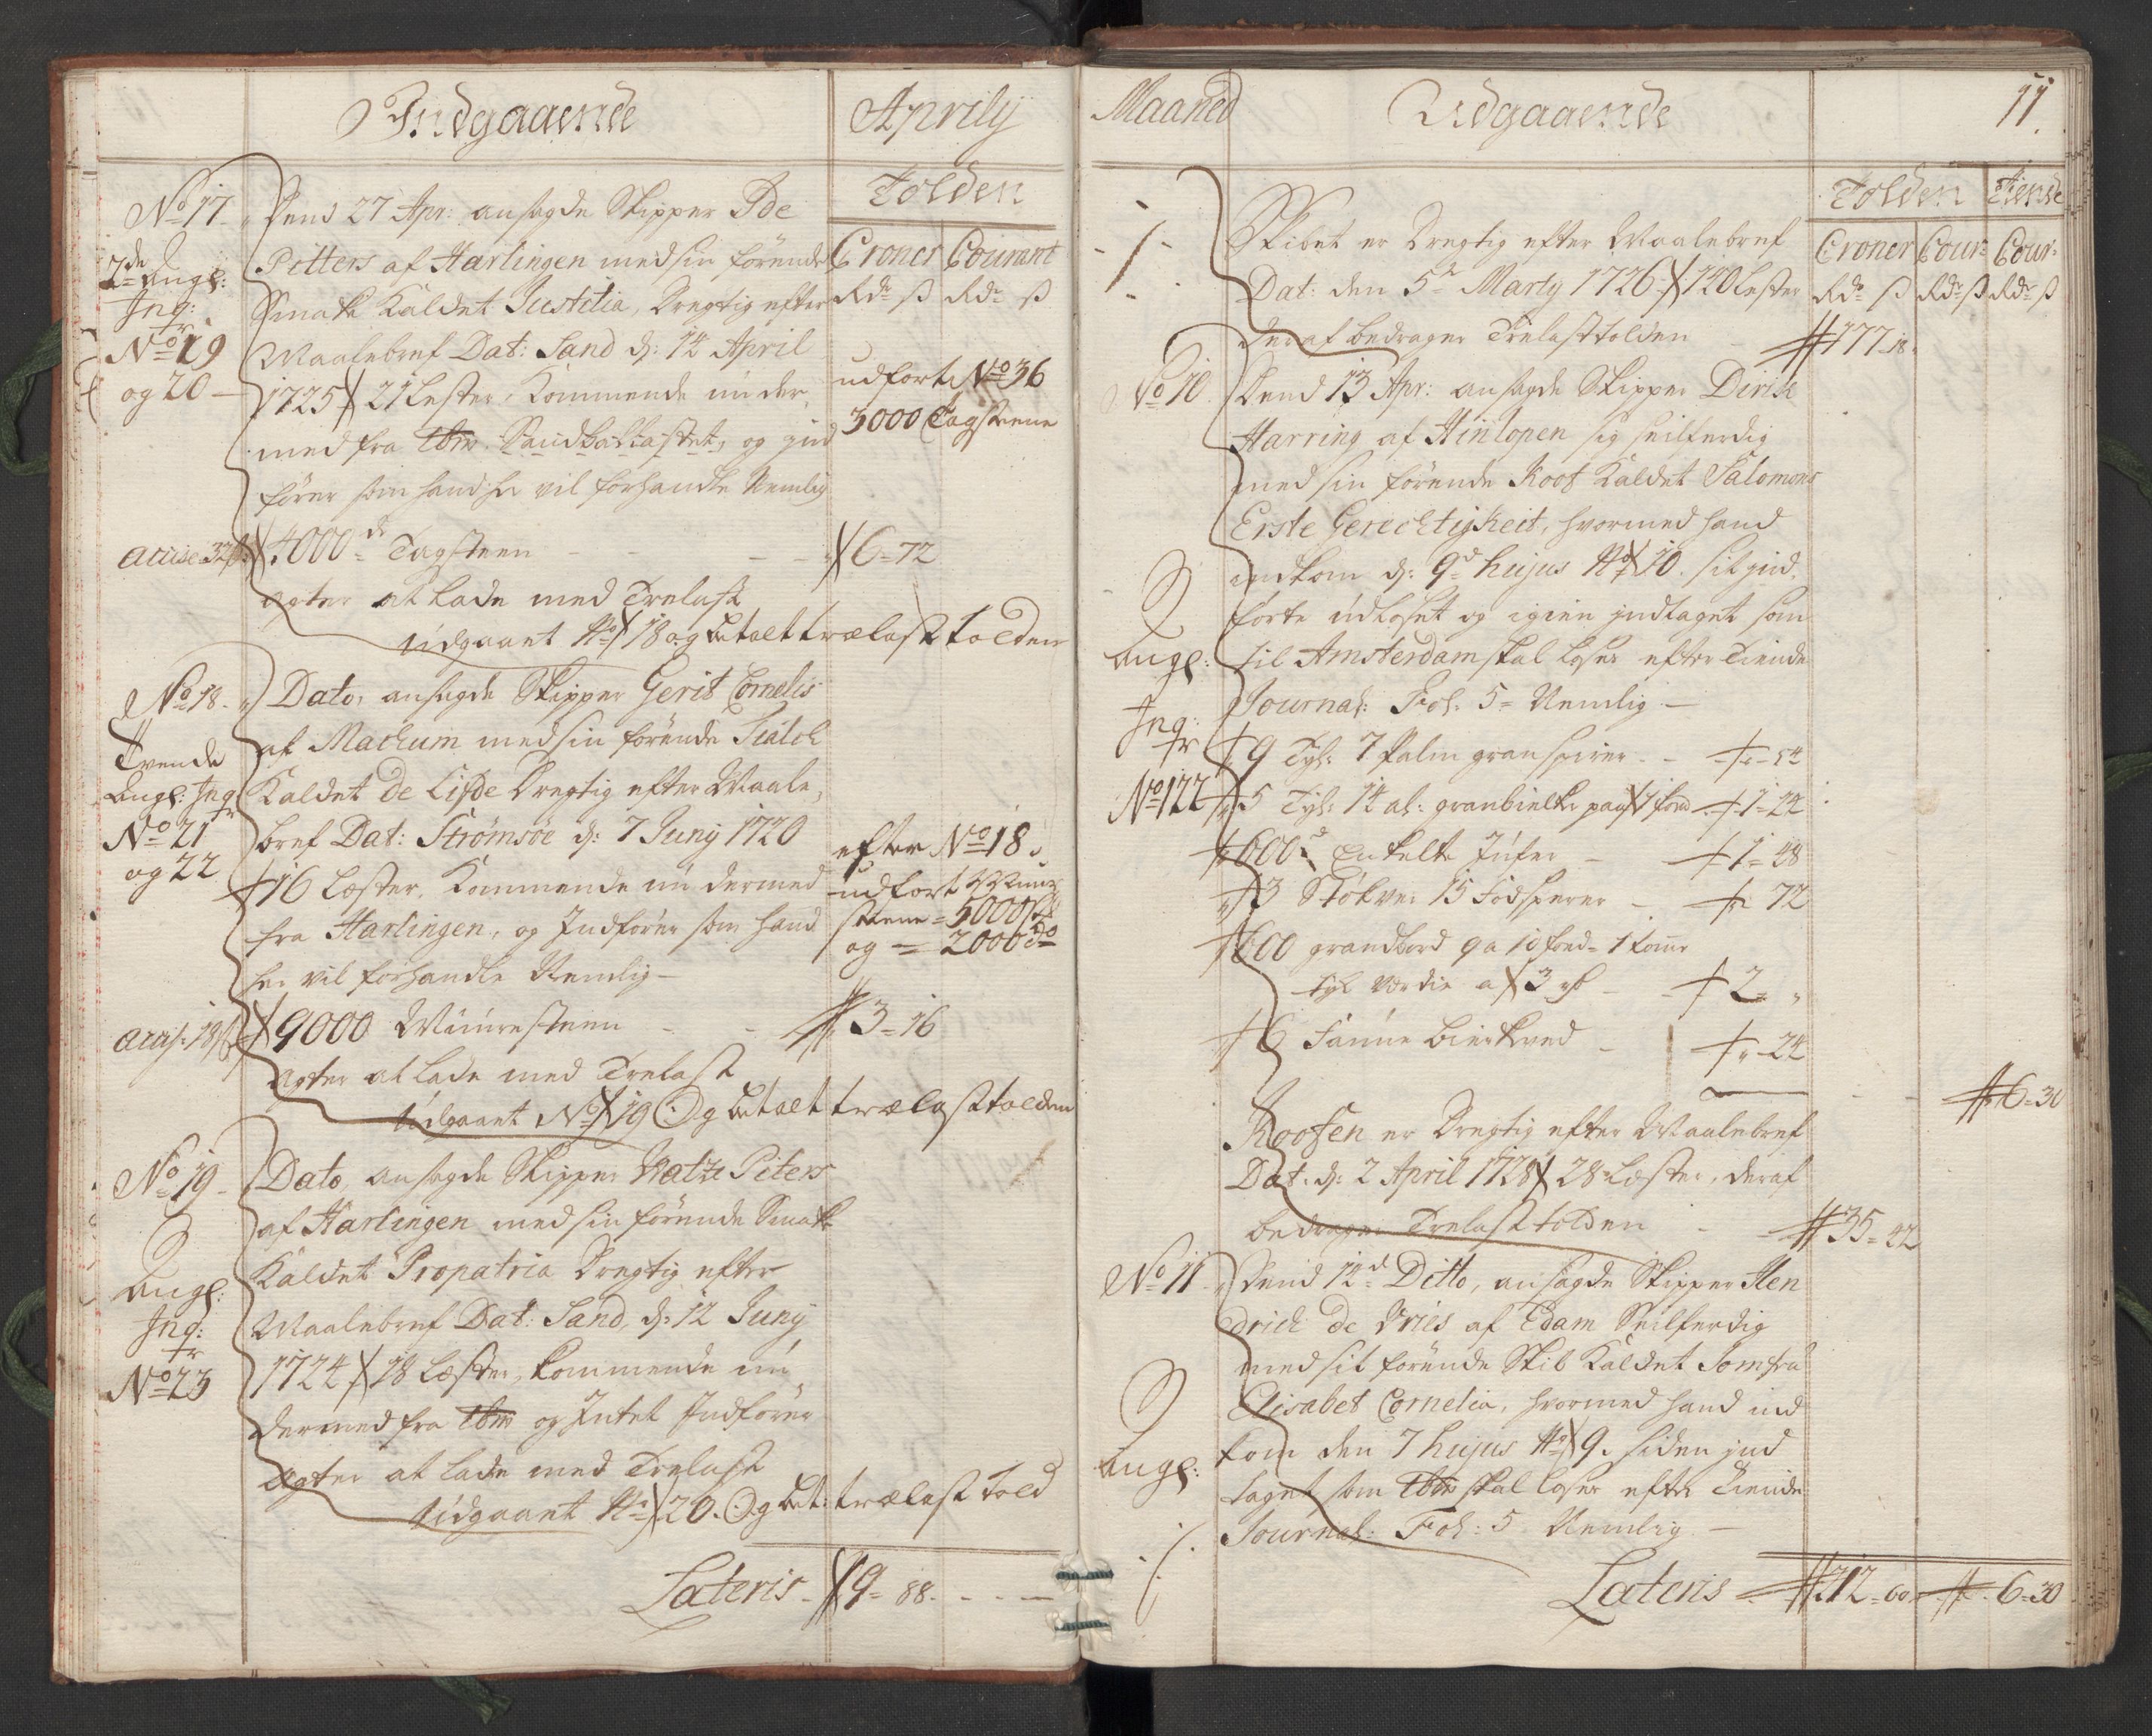 Indgaaende
Aprilij
Tolden
Croner Courant
Rdr ß Rdr ß
No 17
2de Angl:
Ing:
No 19
og 20
Dend 27 Apr: ansagde Skipper Ide
Pitters af Harlingen med sin förende
Smake Kaldet Justitia, Dregtig efter
Maalebref Dat: Sand d: 14 April
1725 21 Lester, Kommende nu der,
med fra Ibm Sandballastet, og ind
fører som hand her vil forhandle Nemlig
udfort No 36
3000 Tagsteene
accise 32ß: 4000 de Tagsteen - 6=72
agter at lade med Trelast
Udgaaet No 18 og betalt trælast tolden
No 18.
Tvende
Angl: Ing
No 21
og 22
Dato, ansagde Skipper Gerit Cornelis
af Mackum med sin förende Tialck
Kaldet De Lifde Dregtig efter Maale,
bref Dat: Strømsøe d: 7 Juny 1720
16 Lester, Kommende nu dermed
fra Harlingen, og Indfører som hand
her vil forhandle Nemlig
efter No 18
udfort Muur
steene = 5000
og = 2000 do
accis: 18ß 9000 Muuresteen - 3=16
agter at lade med Trelast
Udgaaet No 19 Og betalt trælast tolden
No 19
Angl:
Ing:
No 23
Dato, ansagde Skipper Watze Piters
af Harlingen med sin förende Smak
Kaldet Propatria Dregtig efter
Maalebref Dat: Sand, d: 12 Juny
1724 18 Lester, kommende nu
dermed fra Ibm og Intet Indfører
agter at lade med Trelast
Udgaaet No 20. Og bet: trælast Told
Lateris 9=88.
Maaned
Udgaaende
11.
Tolden Tiende
Croner Cour: Cour:
Rdr ß Rdr ß Rdr ß
Skibet er Dregtig efter Maalebref
Dat: den 5te Marty 1726 140 Lester
deraf bedrager Trelasttolden 177=18
No 10.
Dend 13 Apr: ansagde Skipper Dirick
Harring af Hinlopen sig seilferdig
med sin förende Koof Kaldet Salomons
Erste Gerechtigkeit, hvormed hand
indkom d: 9de hujus No 10. sit ind,
førte udloset og igien indtaget som
til Amsterdam skal loses efter Tiende
Journal: Fol: 5 = Nemlig
Angl:
Ing:
No 122
9 Tyl: 7 Palm granspirer - 54
5 Tyl: 14 al: granbielker paa 1 fod 1=24
600 d Enkelte Jufer - 1=48
3 Stökver 15 Fodsparer - 72
600 granbord 9 a 10 fod = 1 tomr
Tyl værdie a 3 rd - 2=
6 Faune Birkved - 24
6=30
Koofen er Dregtig efter Maalebref
Dat: d: 2 April 1728 28 Lester, deraf
bedrager Trelast tolden - 35=42
No 11.
Dend 14d Ditto, ansagde Skipper Hen
drich de Vries af Edam Seilferdig
med sit förende Skib Kaldet Jomfru
Elisabet Cornelia, hvormed hand ind
kom den 7 hujus No 9. siden ind
taget som Ibm skal loses efter Tiende
Journal: Fol: 5 Nemlig
Angl:
Lateris 212=60 6=30